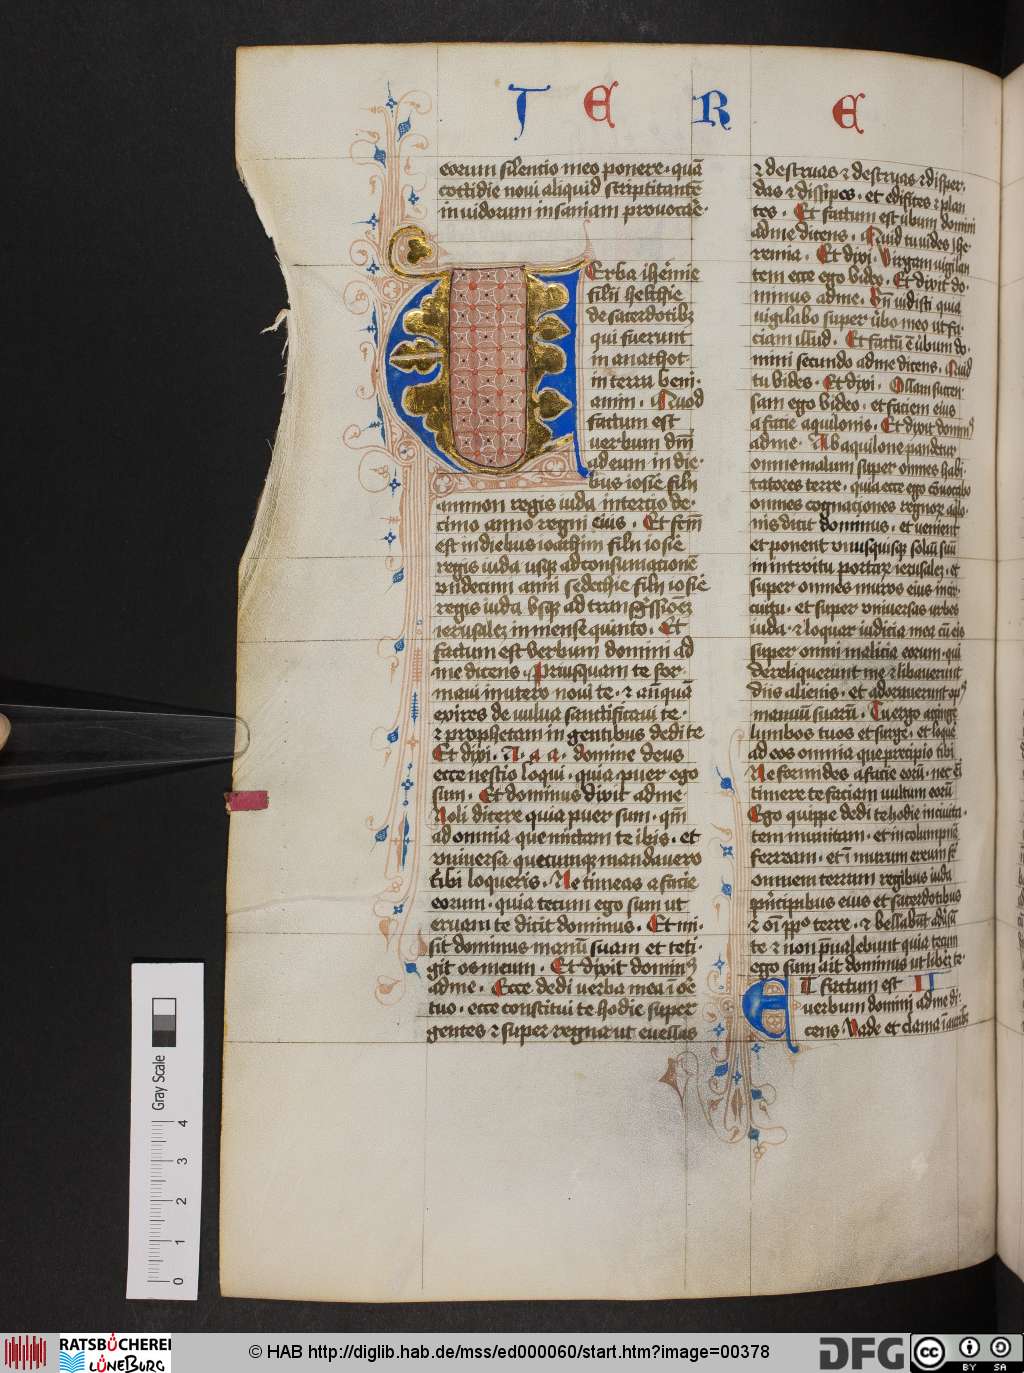 IERE
eorum silencio meo ponere · quā
cottidie novi aliquid scriptitantē
invidorum insaniam provocare ·
Erba iheremie
filii helchie
de sacerdotibz
qui fuerunt
in anathot ·
in terra beni ·
amin · Quod
factum est
verbum dn̄i
ad eum in die ·
bus iosie filii
ammon regis iuda in tercio de ·
cimo anno regni eius · Et fc̄m
est in diebus ioachim filii iosie
regis iuda usqz ad consumacionē
undecimi anni sedechie filii iosie
regis iuda usqz ad transgressiōez
ierusalez in mense quinto · Et
factum est verbum domini ad
me dicens · Priusquam te for ·
mavi in utero novi te · et an̄quā
exires de vulva sanctificavi te ·
et prophetam in gentibus dedi te
Et dixi · A · a · a · domine deus
ecce nescio loqui · quia puer ego
sum · Et dominus dixit ad me
Noli dicere quia puer sum · qm̄
ad omnia que mictam te ibis · et
universa quecumqz mandavero
tibi loqueris · Ne timeas a facie
eorum · quia tecum ego sum ut
eruam te dicit dominus · Et mi ·
sit dominus manū suam et teti ·
git os meum · Et dixit dominꝰ
ad me · Ecce dedi verba mea ī ore
tuo · ecce constitui te hodie super
gentes et super regna ut evellas
et destruas et destruas et disper ·
das et dissipes · et edifices et plan
tes · Et factum est ūbum domini
ad me dicens · Quid tu vides ihe
remia · Et dixi · Virgam vigilan
tem ecce ego video · Et dixit do ·
minus ad me · Bn̄ vidisti quia
vigilabo super ūbo meo ut fa ·
ciam illud · Et factū ē ūbum do ·
mini secundo ad me dicens · Quid
tu vides · Et dixi · Ollam succen ·
sam ego video · et faciem eius
a facie aquilonis · Et dixit dominꝰ
ad me · Ab aquilone pandetur
omne malum super omnes habi
tatores terre · quia ecce ego convocabo
omnes cognaciones regnorz aqlo ·
nis dicit dominus · et venient
et ponent unusquisqz soliū suū
in introitu portarz ierusalez · et
super omnes muros eius in cir ·
cuitu · et super universas urbes
iuda · et loquar iudicia mea cū eis
super omni malicia eorum · qui
dereliquerunt me et libaverunt
diis alienis · et adoraverunt opꝰ
manuū suarū · Tu ergo accinge
lumbos tuos et surge · et loqre
ad eos omnia que precipio tibi
Ne formides a facie eorū · nec ēi
timere te faciam vultum eorū
Ego quippe dedi te hodie in civita ·
tem munitam · et in columpnā
ferream · et ī murum ereum sr̄
omnem terram regibus iuda
principibus eius et sacerdotibus
et oī pplo terre · et bellabūt adūsū
te et non p̄valebunt quia tecum
ego sum ait dominus ut liberē te ·
ET factum est II
verbum domini ad me di ·
cens Vade et clama ī auribz
Gray Scale
0 1 2 3 4
RATSBÜCHEREI
LÜNEBURG
© HAB http://diglib.hab.de/mss/ed000060/start.htm?image=00378
DFG
cc BY SA